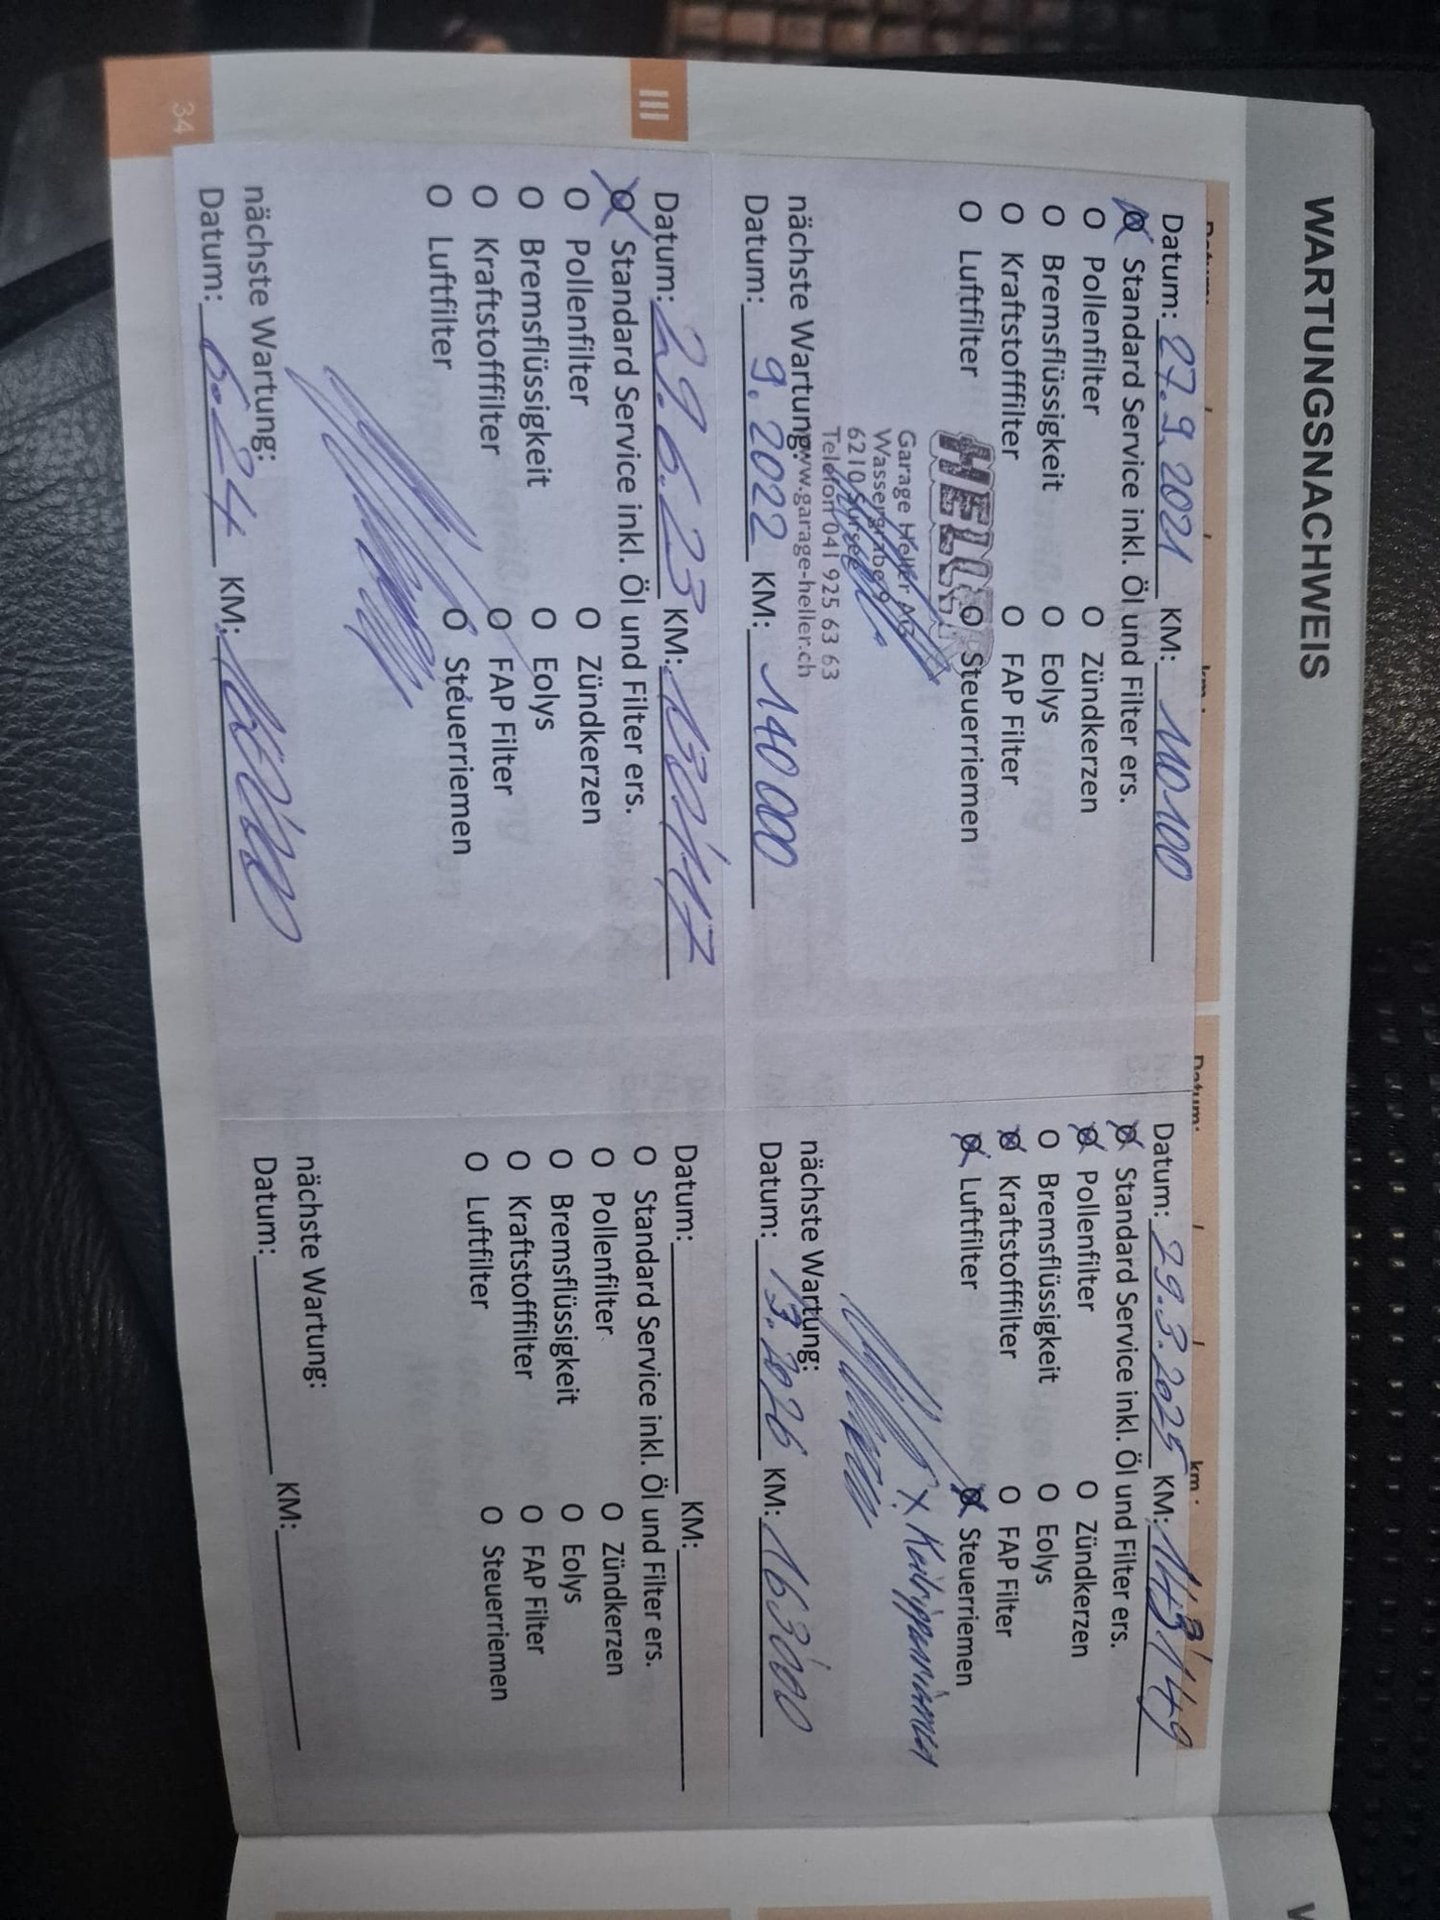 WARTUNGSNACHWEIS
Datum: 27.9.2021 KM: 110100
Standard Service inkl. Öl und Filter ers.
O Pollenfilter O Zündkerzen
O Bremsflüssigkeit O Eolys
O Kraftstofffilter O FAP Filter
O Luftfilter O Steuerriemen
HELLER
Garage Heller AG
Wassergrabe 9
6210 Sursee
Telefon 041 925 63 63
www.garage-heller.ch
nächste Wartung:
Datum: 9.2022 KM: 140000
III
Datum: 29.6.23 KM:
Standard Service inkl. Öl und Filter ers.
O Pollenfilter O Zündkerzen
O Bremsflüssigkeit O Eolys
O Kraftstofffilter O FAP Filter
O Luftfilter O Steuerriemen
nächste Wartung:
Datum: 6.24 KM:
34
Datum: km:
Datum: 29.3.2025 KM:
Standard Service inkl. Öl und Filter ers.
Pollenfilter O Zündkerzen
O Bremsflüssigkeit O Eolys
Kraftstofffilter O FAP Filter
Luftfilter Steuerriemen
x Keilrippenriemen
nächste Wartung:
Datum: 3.2026 KM: 163'000
Datum: KM:
O Standard Service inkl. Öl und Filter ers.
O Pollenfilter O Zündkerzen
O Bremsflüssigkeit O Eolys
O Kraftstofffilter O FAP Filter
O Luftfilter O Steuerriemen
nächste Wartung:
Datum: KM: